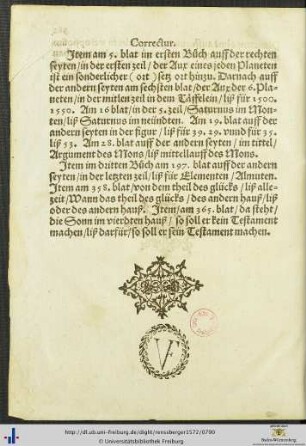 Correctur.
Item am 5. blat im ersten Bůch auff der rechten
seyten/in der ersten zeil/ der Aux eines jeden Planeten
ist ein sonderlicher ( ort ) setz ort hinzu. Darnach auff
der andern seyten am sechsten blat/der Aux der 6. Pla-
neten/in der mitlen zeil in dem Täffelein/ liß für 1500.
1550. Am 16 blat/in der 5. zeil/ Saturnus im Mon-
ten/ liß Saturnus im neündten. Am 19. blat auff der
andern seyten in der figur / liß für 39. 29. vund für 35.
liß 53. Am 28. blat auff der andern seyten / im tittel/
Argument des Mons/ liß mittellauff des Mons.
Item im dritten Bůch am 197. blat auff der andern
seyten/in der letzten zeil/ liß für Elementen/ Almuten.
Item am 358. blat/von dem theil des glücks/ liß alle-
zeit/Wann das theil des glücks/ des andern hauß/ liß
oder des andern hauß. Item/am 365. blat/da steht/
die Sonn im vierdten hauß/ so soll er kein Testament
machen/ liß darfür/ so soll er sein Testament machen.
VF
http://dl.ub.uni-freiburg.de/diglit/rensberger1572/0790
© Universitätsbibliothek Freiburg